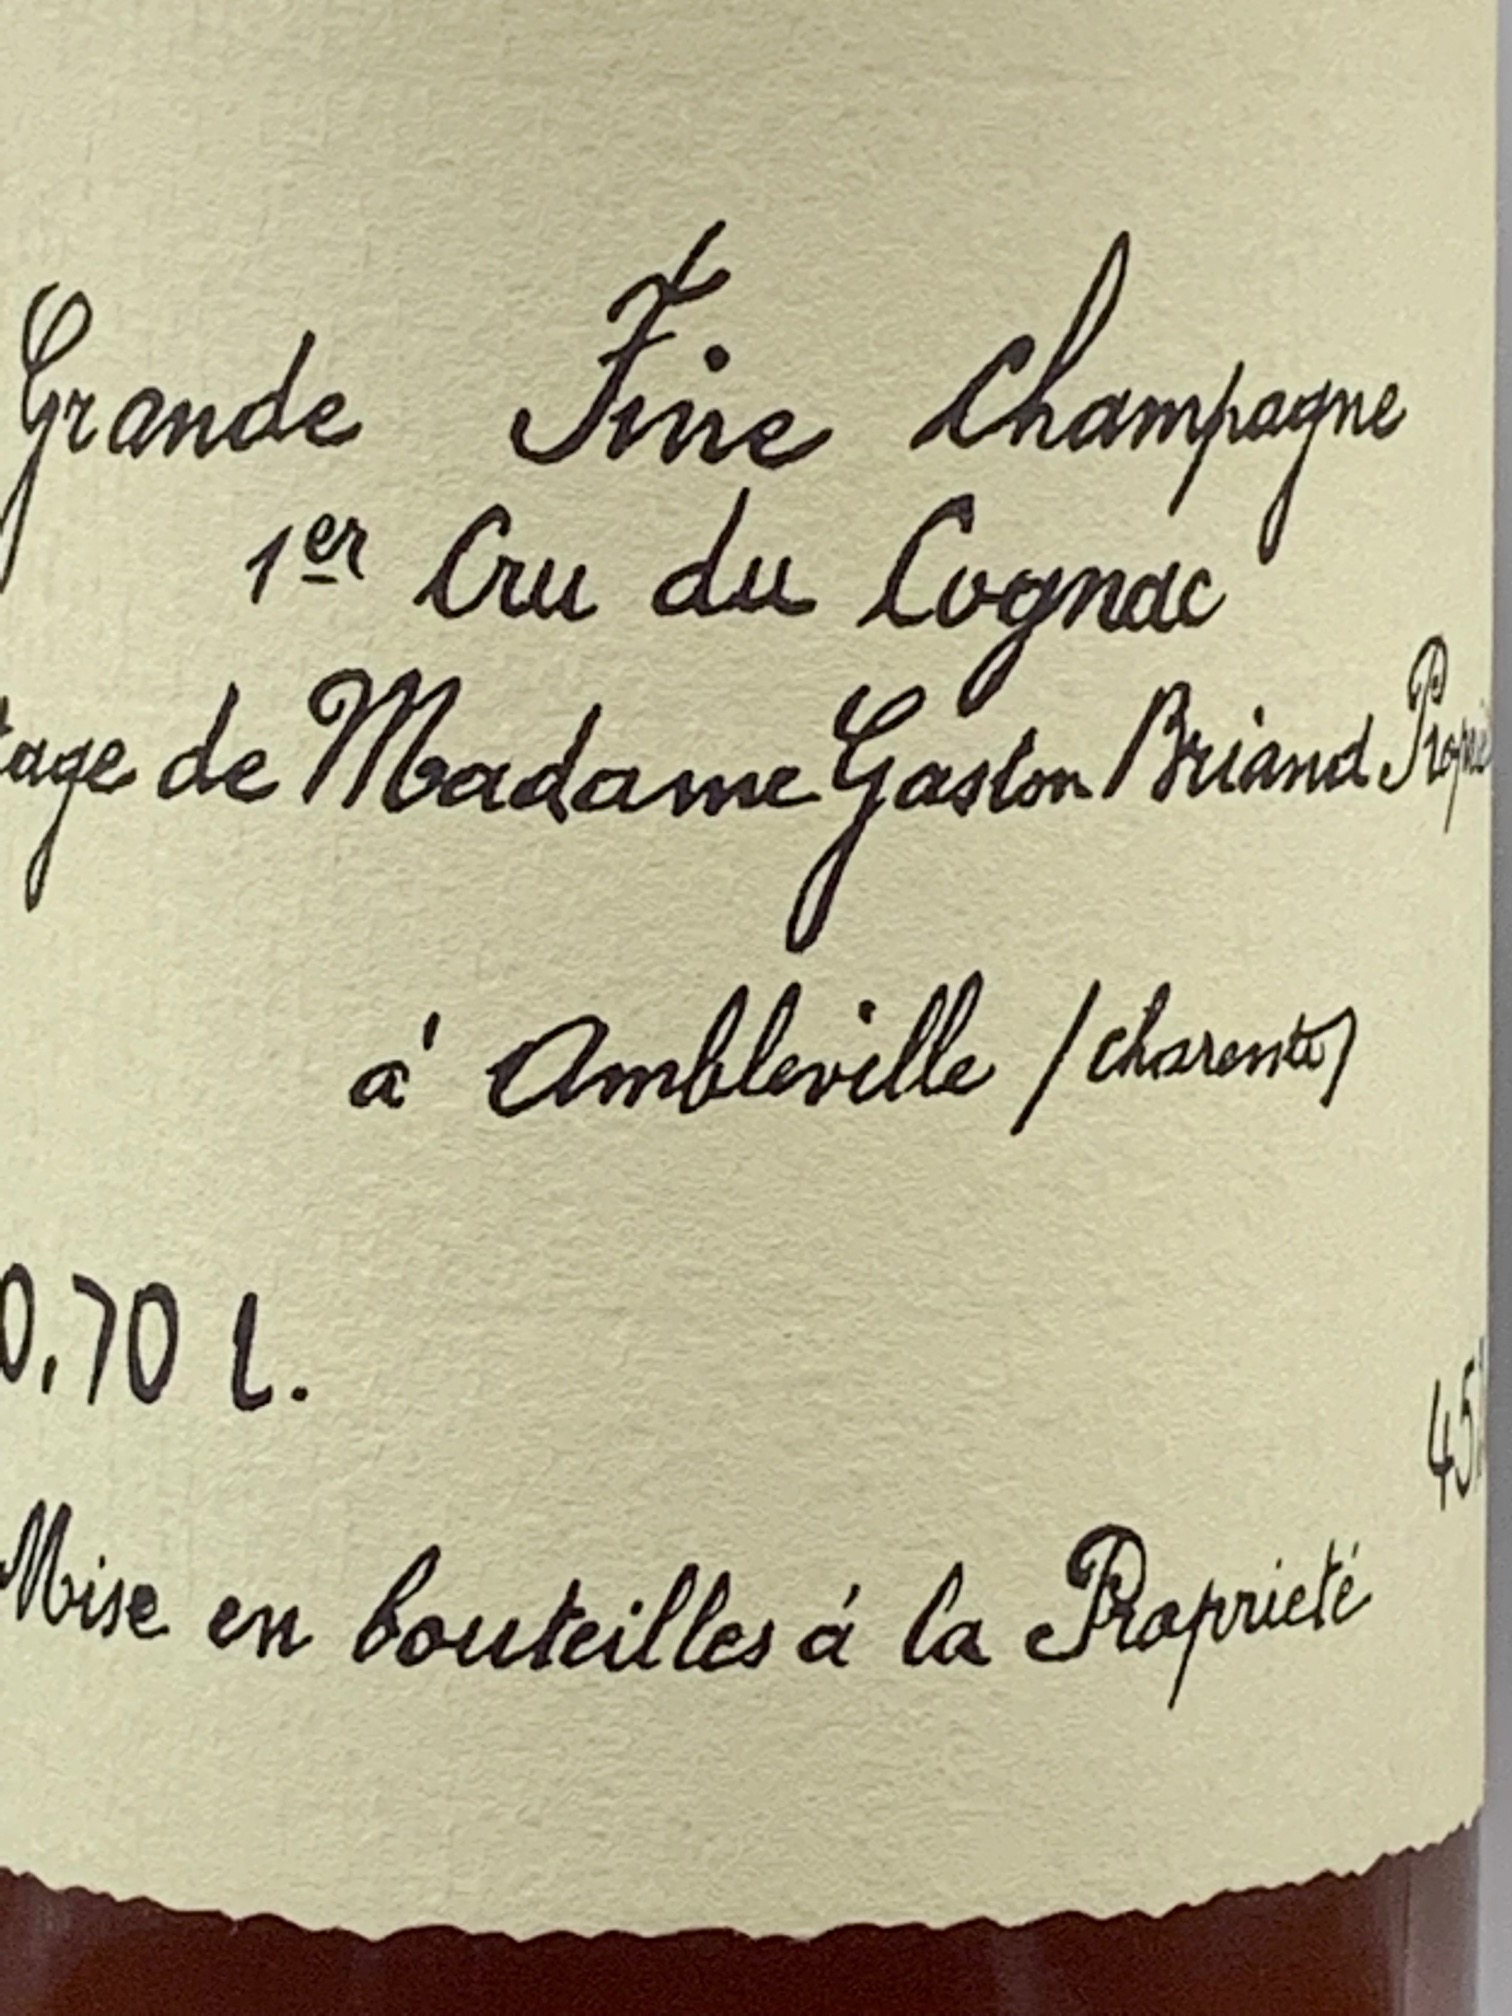 Grande Fine Champagne
1er Cru du Cognac
tage de Madame Gaston Briand Proprié
à Ambleville (Charente)
0.70 L.
45%
Mise en bouteilles à la Proprieté